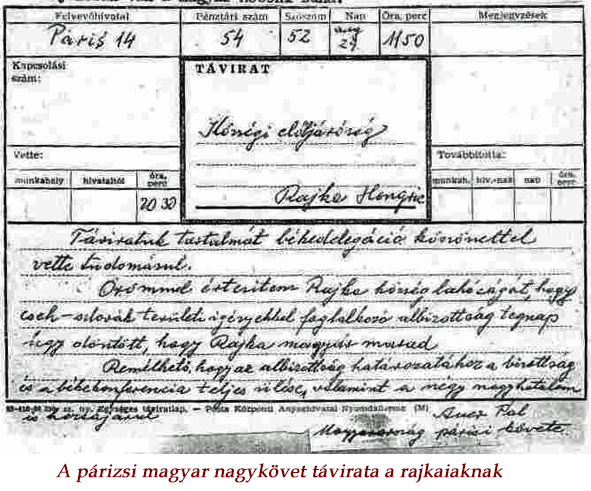 Felvevőhivatal Pénztári szám Szószám Nap Óra, perc Megjegyzések
Páris 14 54 52 29 1150
Kapcsolási szám:
TÁVIRAT
Községi elöljáróság
Rajka Hongrie
Vette:
Továbbította:
munkahely hivataltól óra, perc
munkah. hiv.-nak nap óra, perc
20 30
Táviratuk tartalmát békedelegáció köszönettel
vette tudomásul.
Örömmel értesitem Rajka község lakóságát, hogy
cseh-szlovák területi igényekkel foglalkozó albizottság tegnap
úgy döntött, hogy Rajka magyar marad
Remélhető, hogy az albizottság határozatához a bizottság
és a békekonferencia teljes ülése, valamint a négy nagyhatalom
is hozzájárul
sz. ny. Egységes táviratlap. — Posta Központi Anyaghivatal Nyomdaüzeme (M)
Auer Pál
Magyarország párisi követe.
A párizsi magyar nagykövet távirata a rajkaiaknak